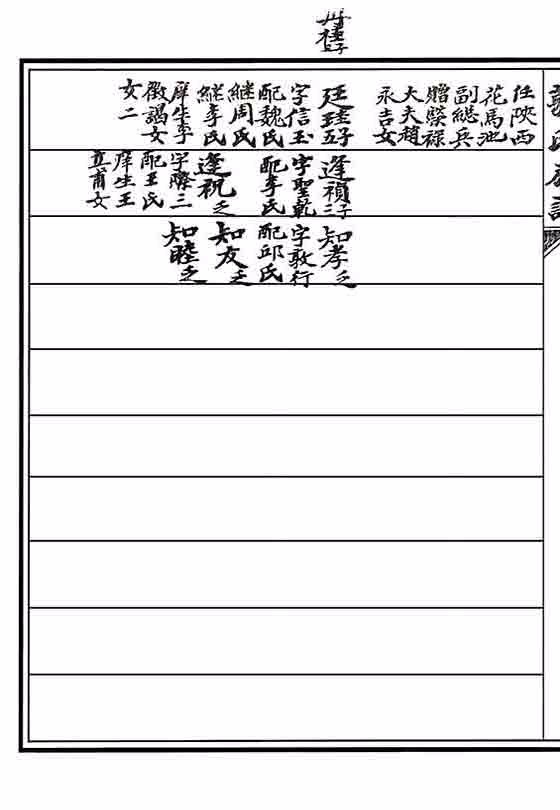 任陝西
花馬池
副總兵
贈榮祿
大夫趙
永吉女
廷珪五子
字信玉
配魏氏
繼周氏
繼李氏
庠生李
徵謁女
女二
逢禎二子
字聖乾
配李氏
逢祝乏
字際三
配王氏
庠生王
立甫女
知孝乏
字敦行
配邱氏
知友乏
知睦乏